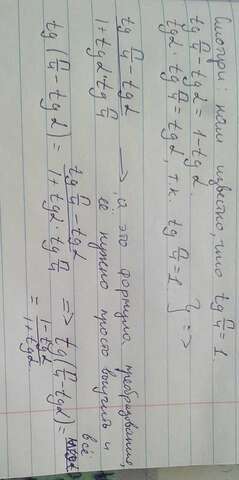 Смотри: нам известно, что tg π/4 = 1
tg π/4 - tgα = 1 - tgα
tgα · tg π/4 = tgα, т.к. tg π/4 = 1 } =>
(tg π/4 - tgα)/(1 + tgα · tg π/4) → а это формула преобразования,
её нужно просто выучить и всё
tg(π/4 - tgα) = (tg π/4 - tgα)/(1 + tgα · tg π/4) => tg(π/4 - tgα) =
= (1 - tgα)/(1 + tgα)